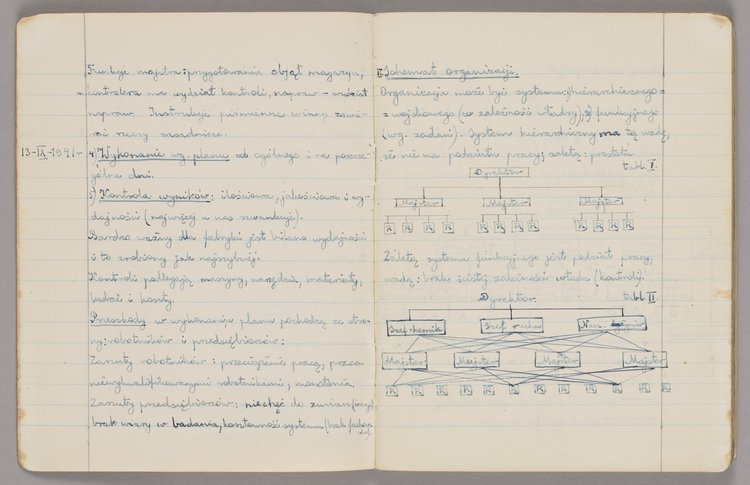 Funkcje majstra: przygotowania objął magazyn,
kontrolera ma wydział kontroli, napraw – wydział
napraw. Instrukcje piśmienne winny zawie-
rać rzeczy zasadnicze.
13-IX-1941- 4) Wykonanie wg. planu od ogólnego i na poszcze-
gólne dni.
5) Kontrola wyników: ilościowa, jakościowa i wy-
dajności (najwięcej u nas szwankuje).
Bardzo ważny dla fabryki jest bilans wydajności
i to zrobiony jak najszybciej.
Kontroli podlegają maszyny, narzędzia, materiały,
ludzie i koszty.
Przeszkody w wykonaniu planu pochodzą ze stro-
ny: robotników i przedsiębiorców:
Zarzuty robotników: przeciążenie pracą, praca
niewykwalifikowanymi robotnikami, monotonia.
Zarzuty przedsiębiorców: niechęć do zmian
brak wiary w badania, kosztowność systemu (brak
II. Schemat organizacji.
Organizacja może być systemu: 1) hierarchicznego =
= wojskowego (w zależności władzy), 2) funkcyjnego
(wg. zadań). System hierarchiczny ma tę wadę,
że nie ma podziału pracy; zaletą: prostota.
tabl. I.
Dyrektor
Majster Majster Majster
R R R R R R R R R R R R
Zaletą systemu funkcyjnego jest podział pracy,
wadą: brak ścisłej zależności władz (kontroli).
Dyrektor. tabl. II.
Szef chemik Szef ruchu
Majster Majster Majster Majster
R R R R R R R R R R R